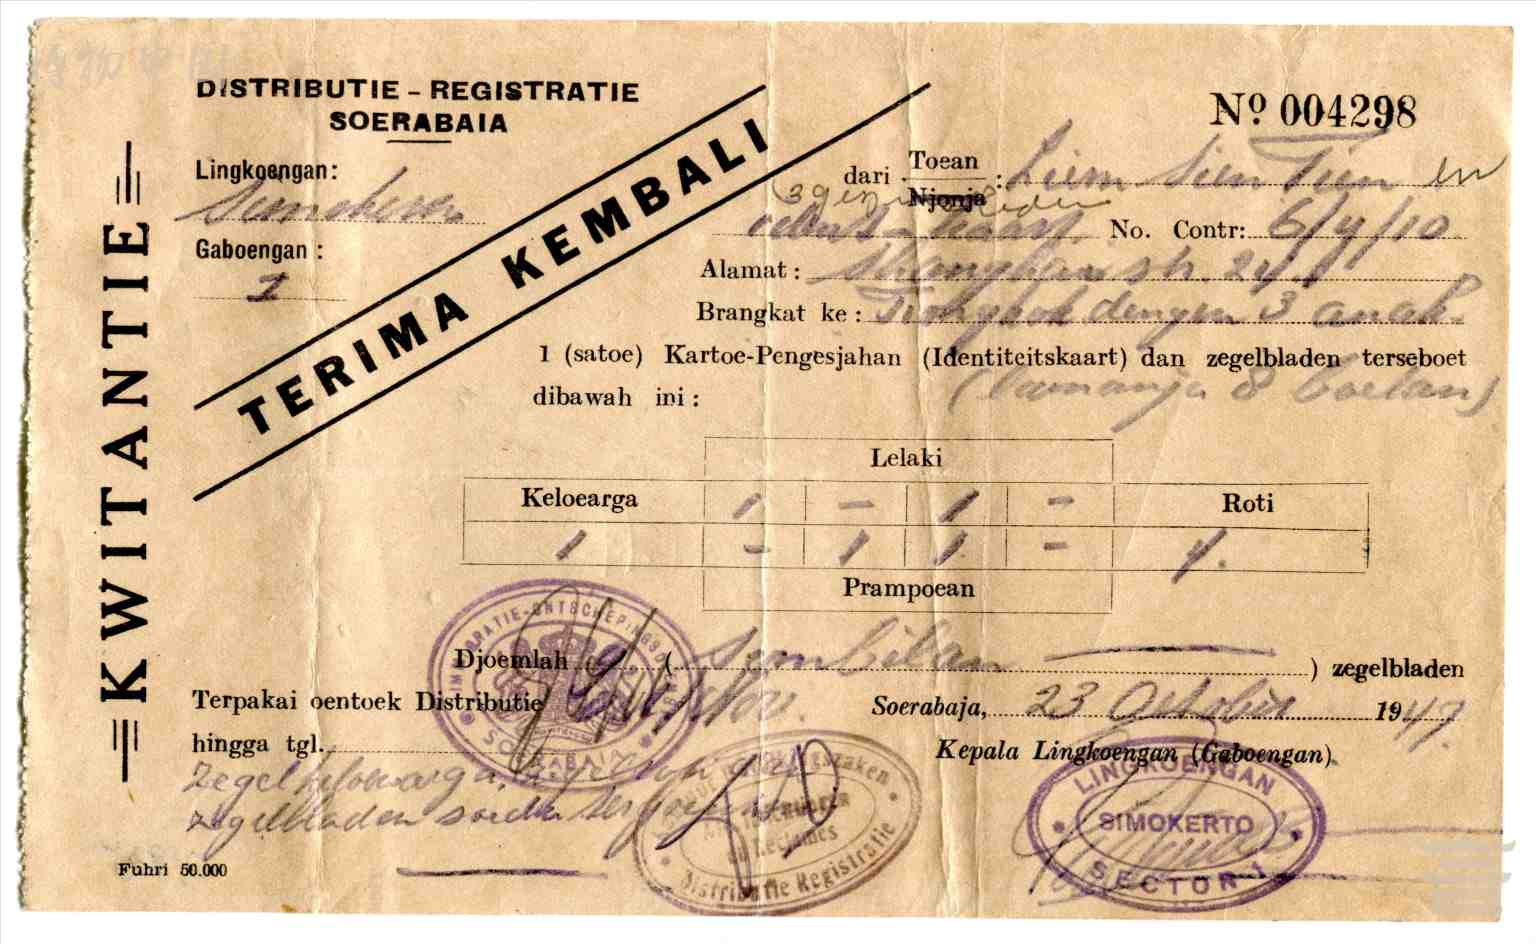 DISTRIBUTIE - REGISTRATIE
SOERABAIA
KWITANTIE
TERIMA KEMBALI
Nº 004298
Lingkoengan:
Gaboengan :
1
dari Toean : Liem Sien Tien en
Njonja
3 gezinsleden
No. Contr: 6/4/10
Alamat : Shanghai str. 24
Brangkat ke : Tiongkok dengen 3 anak.
1 (satoe) Kartoe-Pengesjahan (Identiteitskaart) dan zegelbladen terseboet
(lamanja 8 boelan)
dibawah ini :
Lelaki
Keloearga 1 - 1 - Roti
1 - 1 1 - 4.
Prampoean
Djoemlah 9 ( sembilan ) zegelbladen
Terpakai oentoek Distributie
Soerabaja, 23 October 1947.
hingga tgl.
Kepala Lingkoengan (Gaboengan)
Zegel keloearga,
zegelbladen soedah
IMMIGRATIE-ONTSCHEPINGS
SOERABAIA
en Reclames
Distributie Registratie
LINGKOENGAN
SIMOKERTO
SECTOR 1
Fuhri 50.000